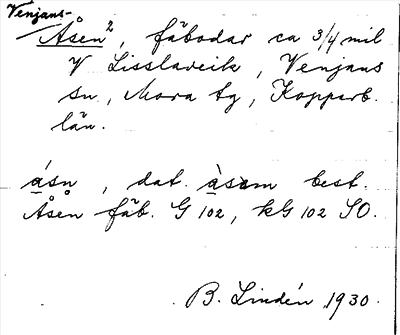 Venjans-
Åsen², fäbodar ca 3/4 mil
V Lisslaveik, Venjans
sn, Mora tg, Kopparb.
län.
åsn, dat. àsåm best.
Åsen fäb. G 102, kG 102 SO.
B. Lindén 1930.